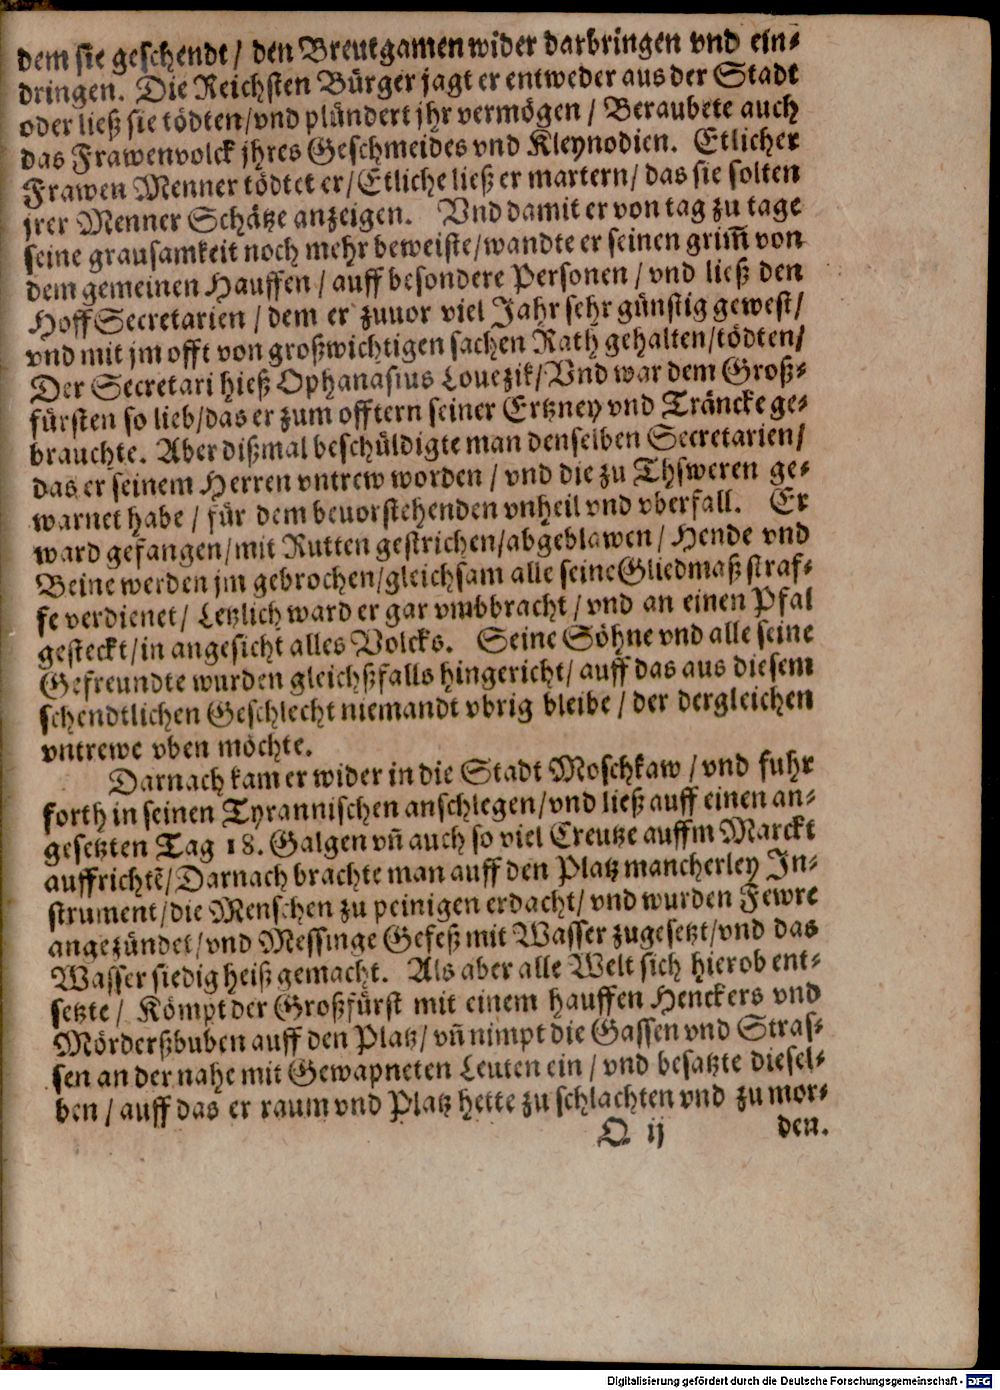 dem sie geschendt / den Breutgamen wider darbringen vnd ein-
dringen. Die Reichsten Bürger jagt er entweder aus der Stadt
oder ließ sie tödten/vnd plündert jhr vermögen / Beraubete auch
das Frawenvolck jhres Geschmeides vnd Kleynodien. Etlicher
Frawen Menner tödtet er/Etliche ließ er martern/das sie solten
jrer Menner Schätze anzeigen. Vnd damit er von tag zu tage
seine grausamkeit noch mehr beweiste/wandte er seinen grim̃ von
dem gemeinen Hauffen / auff besondere Personen / vnd ließ den
Hoff Secretarien / dem er zuuor viel Jahr sehr günstig gewest/
vnd mit jm offt von großwichtigen sachen Rath gehalten/tödten/
Der Secretari hieß Ophanasius Louezik/Vnd war dem Groß-
fürsten so lieb/das er zum offtern seiner Ertzney vnd Träncke ge-
brauchte. Aber dißmal beschüldigte man denselben Secretarien/
das er seinem Herren vntrew worden / vnd die zu Thsweren ge-
warnet habe / für dem beuorstehenden vnheil vnd vberfall. Er
ward gefangen/mit Rutten gestrichen/abgeblawen / Hende vnd
Beine werden jm gebrochen/gleichsam alle seine Gliedmaß straf-
fe verdienet/ Letzlich ward er gar vmbbracht / vnd an einen Pfal
gesteckt/in angesicht alles Volcks. Seine Söhne vnd alle seine
Gefreundte wurden gleichßfalls hingericht/ auff das aus diesem
schendtlichen Geschlecht niemandt vbrig bleibe / der dergleichen
vntrewe vben möchte.
Darnach kam er wider in die Stadt Moschkaw / vnd fuhr
forth in seinen Tyrannischen anschlegen/vnd ließ auff einen an-
gesetzten Tag 18. Galgen vñ auch so viel Creutze auffm Marckt
auffrichtẽ/Darnach brachte man auff den Platz mancherley In-
strument/die Menschen zu peinigen erdacht/ vnd wurden Fewre
angezündet/vnd Messinge Gefeß mit Wasser zugesetzt/vnd das
Wasser siedig heiß gemacht. Als aber alle Welt sich hierob ent-
setzte / Kömpt der Großfürst mit einem hauffen Henckers vnd
Mörderßbuben auff den Platz/ vñ nimpt die Gassen vnd Stras-
sen an der nahe mit Gewapneten Leuten ein / vnd besatzte diesel-
ben / auff das er raum vnd Platz hette zu schlachten vnd zu mor-
O ij den.
Digitalisierung gefördert durch die Deutsche Forschungsgemeinschaft - DFG